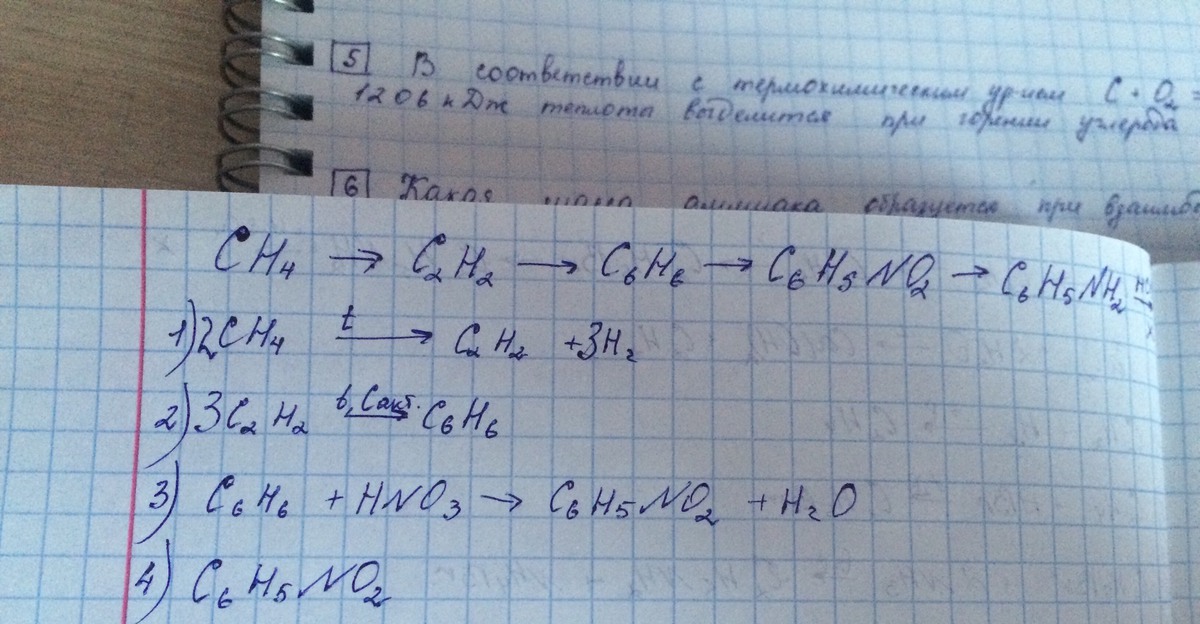 5 В соответствии с термохимическим ур-ием C + O₂ =
1206 кДж теплоты выделится при горении углерода
6 Какая масса аммиака образуется при взаимо
CH₄ → C₂H₂ → C₆H₆ → C₆H₅NO₂ → C₆H₅NH₂ →
1) 2CH₄ t→ C₂H₂ + 3H₂
2) 3C₂H₂ t, Cакт.→ C₆H₆
3) C₆H₆ + HNO₃ → C₆H₅NO₂ + H₂O
4) C₆H₅NO₂